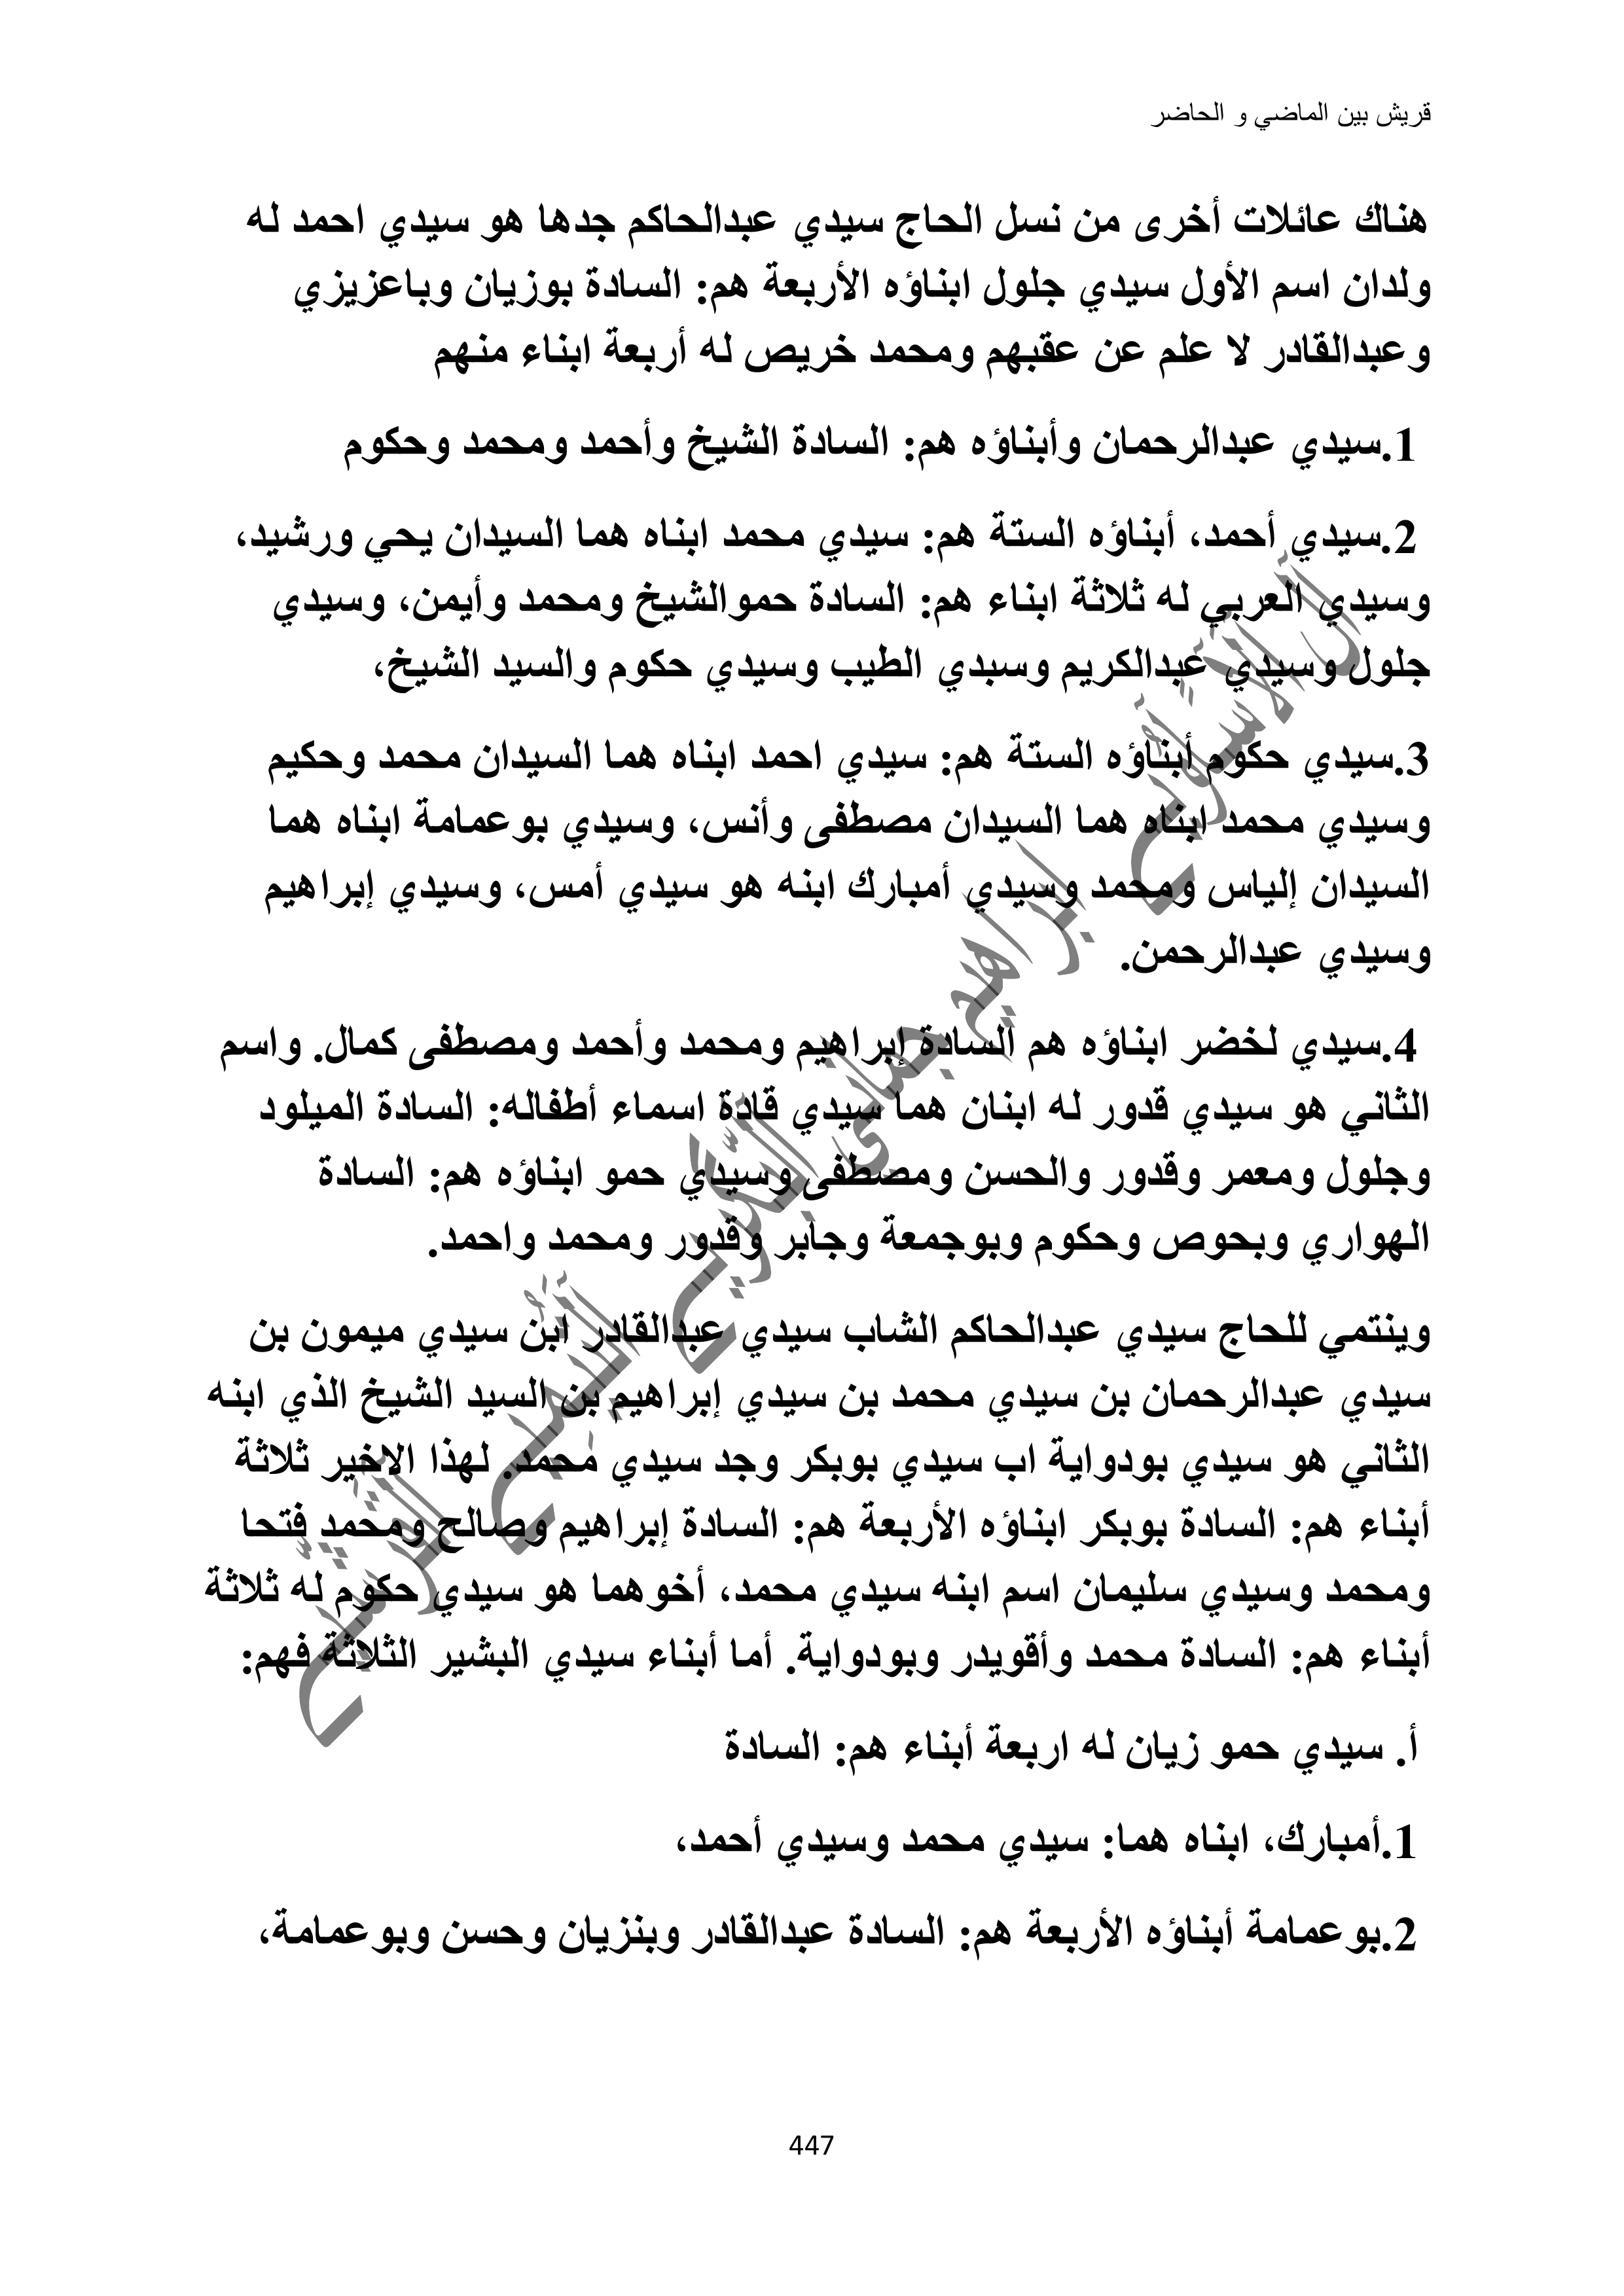 قريش بين الماضي و الحاضر
هناك عائلات أخرى من نسل الحاج سيدي عبدالحاكم جدها هو سيدي احمد له
ولدان اسم الأول سيدي جلول ابناؤه الأربعة هم: السادة بوزيان وباعزيزي
وعبدالقادر لا علم عن عقبهم ومحمد خريص له أربعة ابناء منهم
1.سيدي عبدالرحمان وأبناؤه هم: السادة الشيخ وأحمد ومحمد وحكوم
2.سيدي أحمد، أبناؤه الستة هم: سيدي محمد ابناه هما السيدان يحي ورشيد،
وسيدي العربي له ثلاثة ابناء هم: السادة حموالشيخ ومحمد وأيمن، وسيدي
جلول وسيدي عبدالكريم وسبدي الطيب وسيدي حكوم والسيد الشيخ،
3.سيدي حكوم أبناؤه الستة هم: سيدي احمد ابناه هما السيدان محمد وحكيم
وسيدي محمد ابناه هما السيدان مصطفى وأنس، وسيدي بوعمامة ابناه هما
السيدان إلياس ومحمد وسيدي أمبارك ابنه هو سيدي أمس، وسيدي إبراهيم
وسيدي عبدالرحمن.
4.سيدي لخضر ابناؤه هم السادة إبراهيم ومحمد وأحمد ومصطفى كمال. واسم
الثاني هو سيدي قدور له ابنان هما سيدي قادة اسماء أطفاله: السادة الميلود
وجلول ومعمر وقدور والحسن ومصطفى وسيدي حمو ابناؤه هم: السادة
الهواري وبحوص وحكوم وبوجمعة وجابر وقدور ومحمد واحمد.
وينتمي للحاج سيدي عبدالحاكم الشاب سيدي عبدالقادر ابن سيدي ميمون بن
سيدي عبدالرحمان بن سيدي محمد بن سيدي إبراهيم بن السيد الشيخ الذي ابنه
الثاني هو سيدي بودواية اب سيدي بوبكر وجد سيدي محمد. لهذا الاخير ثلاثة
أبناء هم: السادة بوبكر ابناؤه الأربعة هم: السادة إبراهيم وصالح ومحمد فتحا
ومحمد وسيدي سليمان اسم ابنه سيدي محمد، أخوهما هو سيدي حكوم له ثلاثة
أبناء هم: السادة محمد وأقويدر وبودواية. أما أبناء سيدي البشير الثلاثة فهم:
أ. سيدي حمو زيان له اربعة أبناء هم: السادة
1.أمبارك، ابناه هما: سيدي محمد وسيدي أحمد،
2.بوعمامة أبناؤه الأربعة هم: السادة عبدالقادر وبنزيان وحسن وبوعمامة،
447